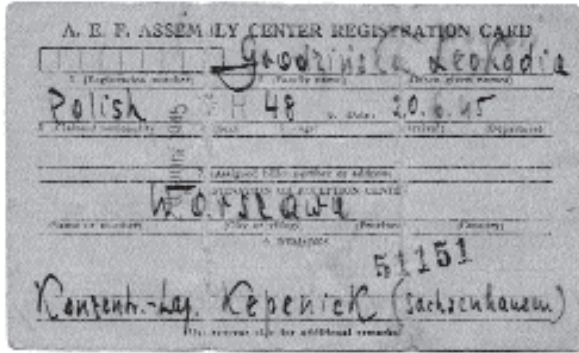 A. E. F. ASSEMBLY CENTER REGISTRATION CARD
Grodzińska Leokadia
1. (Registration number) 2. (Family name) (Other given names)
Polish 48 5. Date: 20.6.45
(Sex) (Age) (Arrival) (Departure)
7. Assigned billet number or address
Warszawa
(Name or number) (City or village) (Province) (Country)
9. REMARKS
51151
Konzentr.-Lag. Kepenick (Sachsenhausen)
(Use reverse side for additional remarks)